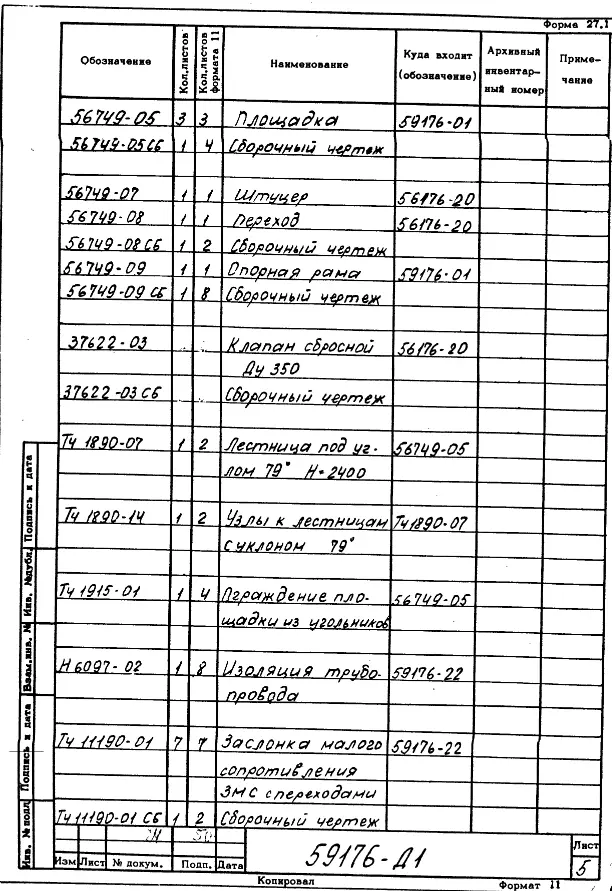 Форма 27.1
Обозначение Кол.листов Кол.листов формата 11 Наименование Куда входит (обозначение) Архивный инвентарный номер Примечание
56749-05 3 3 Площадка 59176-01
56749-05СБ 1 4 Сборочный чертеж
56749-07 1 1 Штуцер 56176-20
56749-08 1 1 Переход 56176-20
56749-08СБ 1 2 Сборочный чертеж
56749-09 1 1 Опорная рама 59176-01
56749-09 СБ 1 8 Сборочный чертеж
37622-03 Клапан сбросной 56176-20
Ду 350
37622-03СБ Сборочный чертеж
Тч 1890-07 1 2 Лестница под уг- 56749-05
лом 79° Н=2400
Тч 1890-14 1 2 Узлы к лестницам Тч1890-07
с уклоном 79°
Тч 1915-01 1 4 Ограждение пло- 56749-05
щадки из угольников
Н 6097-02 1 8 Изоляция трубо- 59176-22
провода
Тч 11190-01 7 7 Заслонка малого 59176-22
сопротивления
ЗМС с переходами
Тч 11190-01 СБ 1 2 Сборочный чертеж
Инв. № подл. Подпись и дата Взам.инв. № Инв. № дубл. Подпись и дата
Изм Лист № докум. Подп. Дата
59176-Д1
Лист
5
Копировал Формат 11